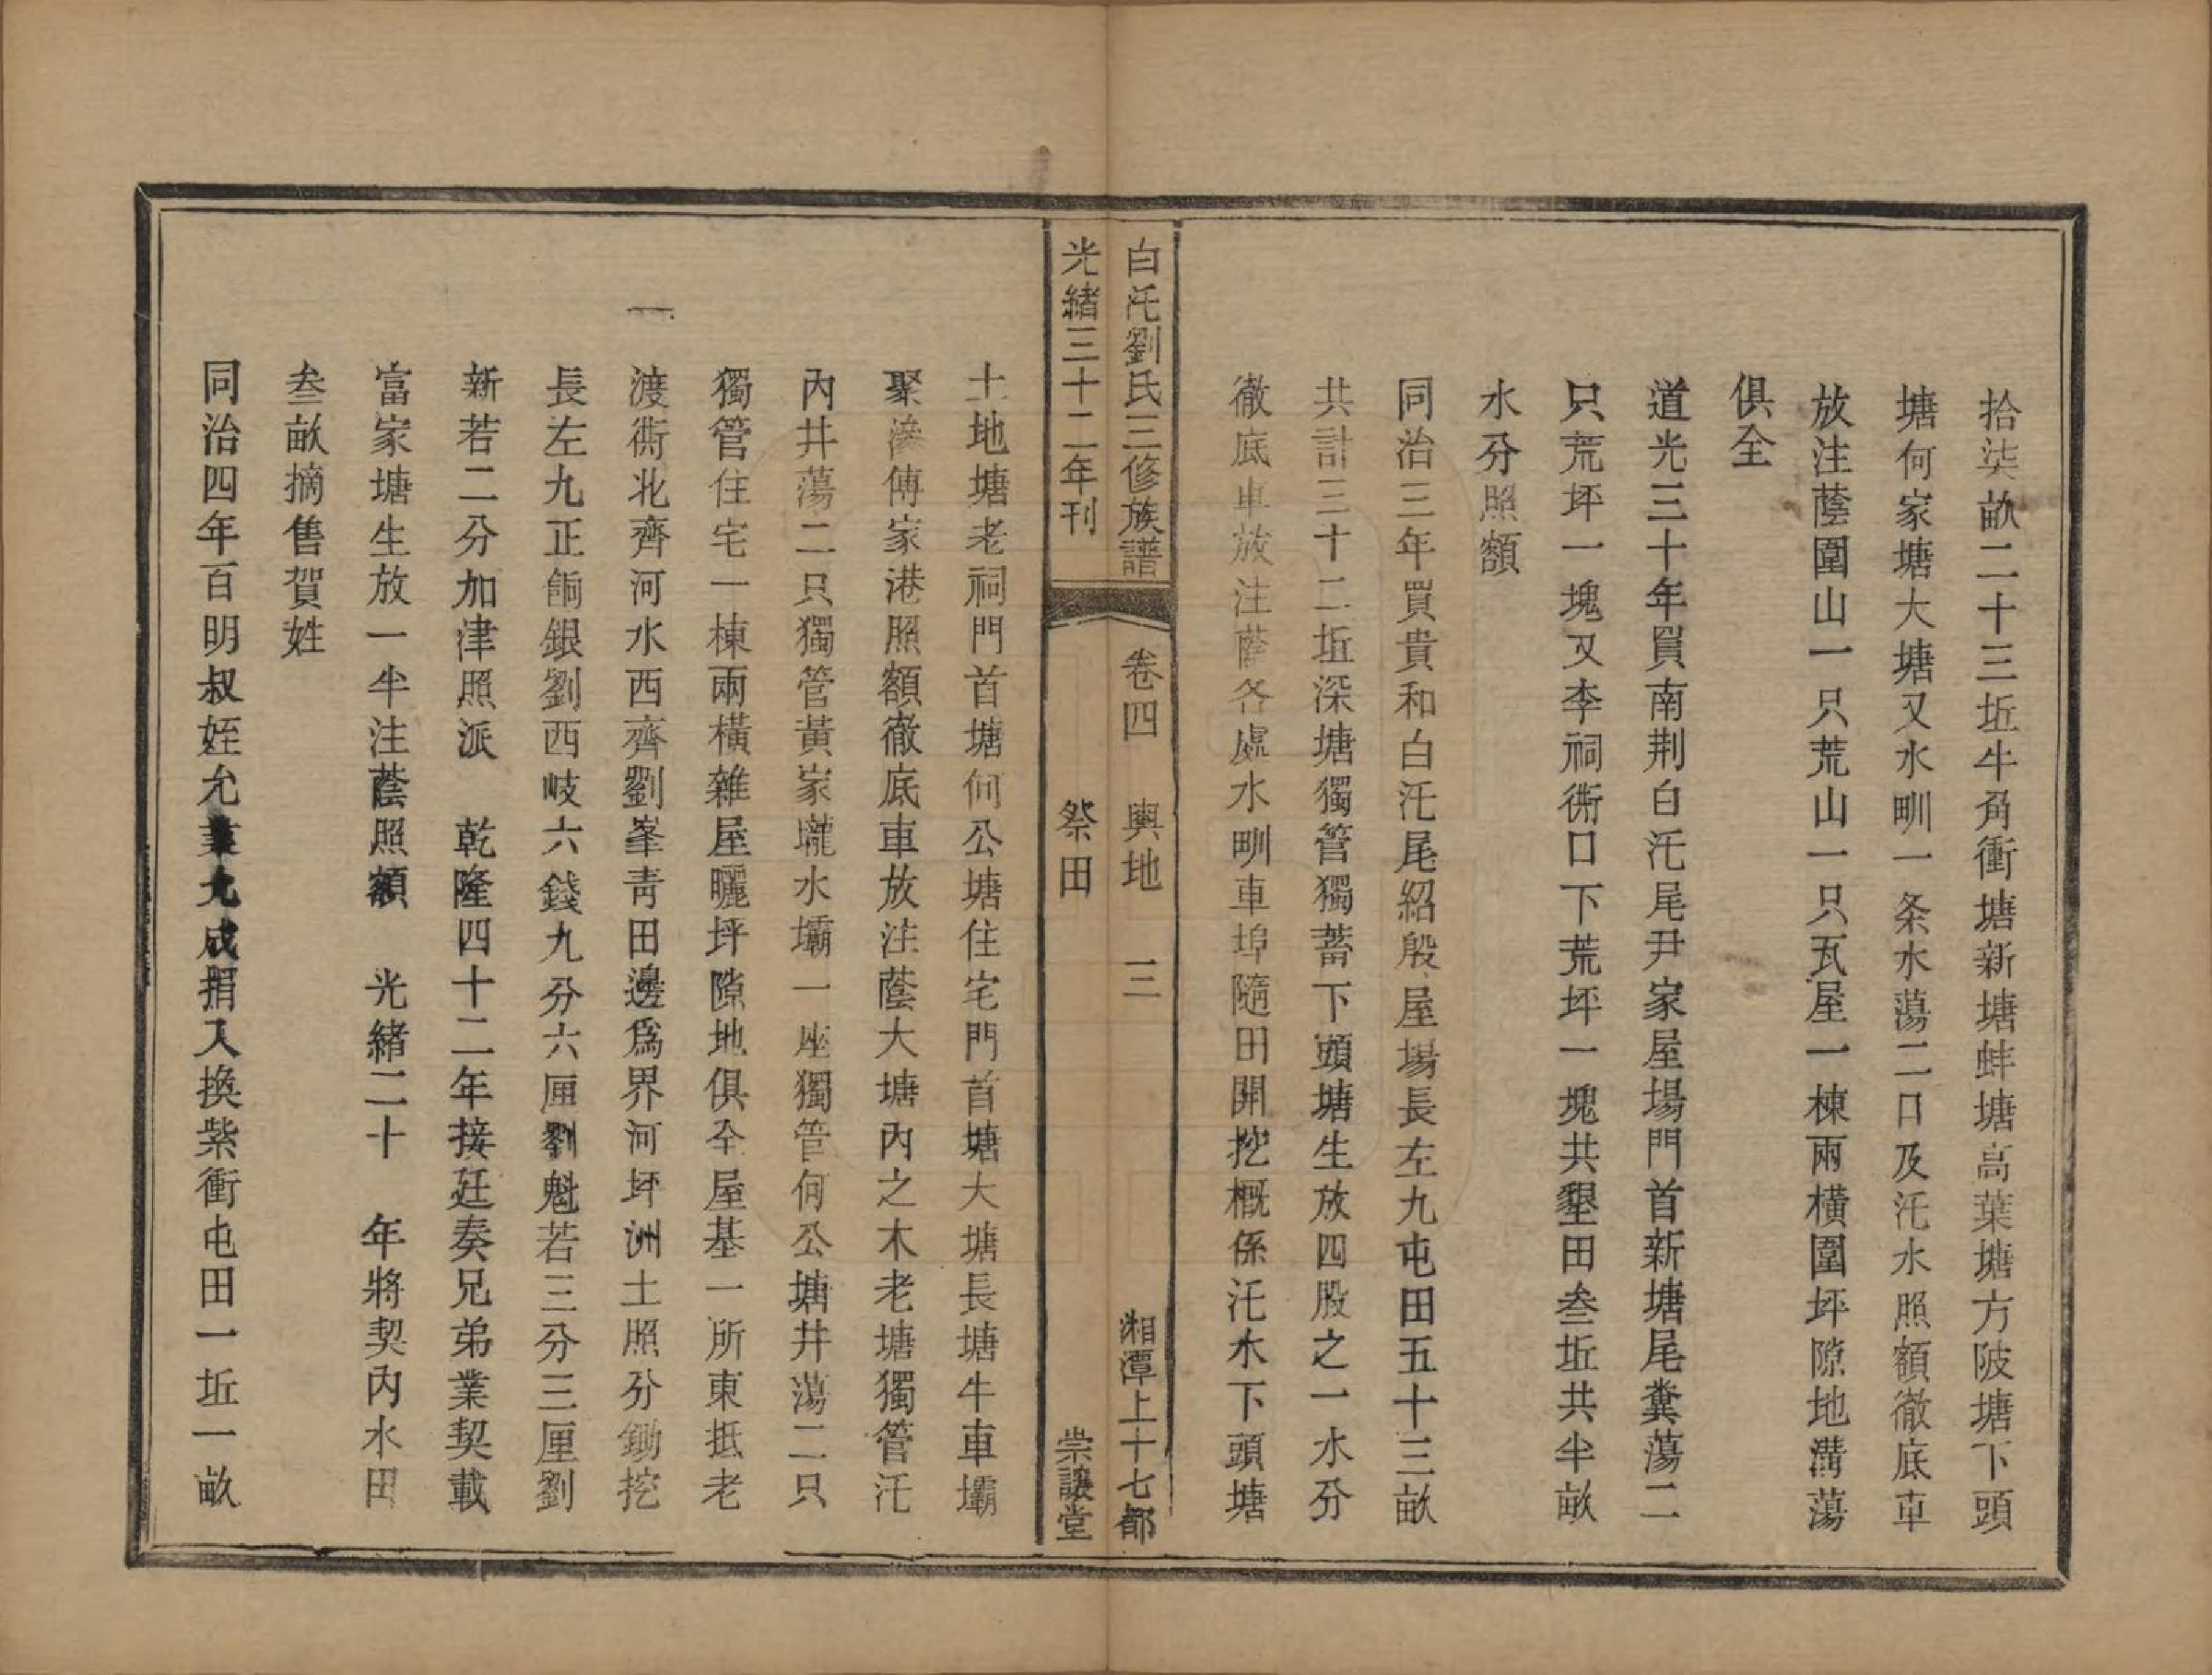 拾柒畝二十三坵牛角衝塘新塘蚌塘高葉塘方陂塘下頭
塘何家塘大塘又水甽一条水蕩二口及汑水照額徹底車
放注蔭圍山一只荒山一只瓦屋一棟兩橫圍坪隙地溝蕩
俱全
道光三十年買南荆白汑尾尹家屋場門首新塘尾糞蕩二
只荒坪一塊又李祠衕口下荒坪一塊共墾田叁坵共半畝
水分照額
同治三年買貴和白汑尾紹殷屋場長左九屯田五十三畝
共計三十二坵深塘獨管獨蓄下頭塘生放四股之一水分
徹底車放注蔭各處水甽車埠隨田開挖概係汑木下頭塘
白汑劉氏三修族譜 卷四 輿地 三 湘潭上十七都
光緒三十二年刊 祭田 崇讓堂
土地塘老祠門首塘何公塘住宅門首塘大塘長塘牛車壩
聚滲傅家港照額徹底車放注蔭大塘內之木老塘獨管汑
內井蕩二只獨管黃家壠水壩一座獨管何公塘井蕩二只
獨管住宅一棟兩橫雜屋曬坪隙地俱全屋基一所東抵老
渡衕北齊河水西齊劉峯靑田邊爲界河坪洲土照分鋤挖
長左九正餉銀劉西岐六錢九分六厘劉魁若三分三厘劉
新若二分加津照派 乾隆四十二年接廷奏兄弟業契載
富家塘生放一半注蔭照額 光緒二十 年將契內水田
叁畝摘售賀姓
同治四年百明叔姪允業允成捐入換紫衝屯田一坵一畝